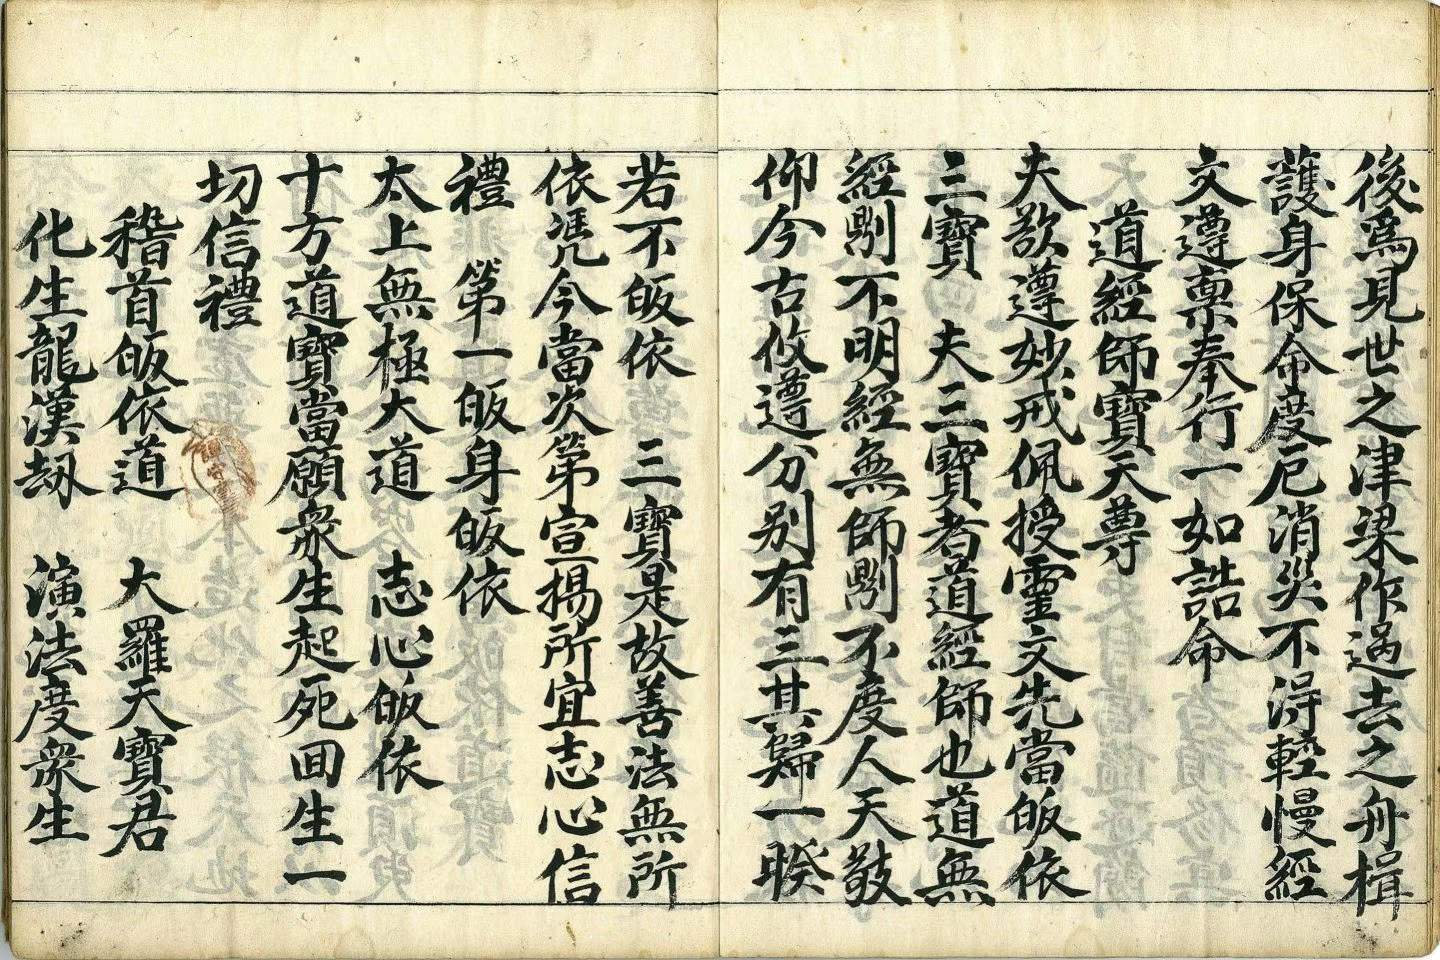 後爲見世之津梁作過去之舟楫
護身保命度厄消災不淂輕慢經
文遵禀奉行一如誥命
道經師寶天尊
夫欲遵妙戒佩授靈文先當皈依
三寶　夫三寶者道經師也道無
經則不明經無師則不度人天敬
仰今古攸遵分别有三其歸一睽
若不皈依　三寶是故善法無所
依凴今當次第宣揚所宜志心信
禮　第一皈身皈依
太上無極大道　志心皈依
十方道寶當願衆生起死回生一
切信禮
稽首皈依道　大羅天寶君
化生龍漢劫　演法度衆生